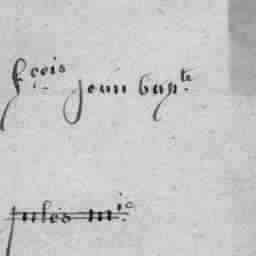 fçois jean bapte
jules mie